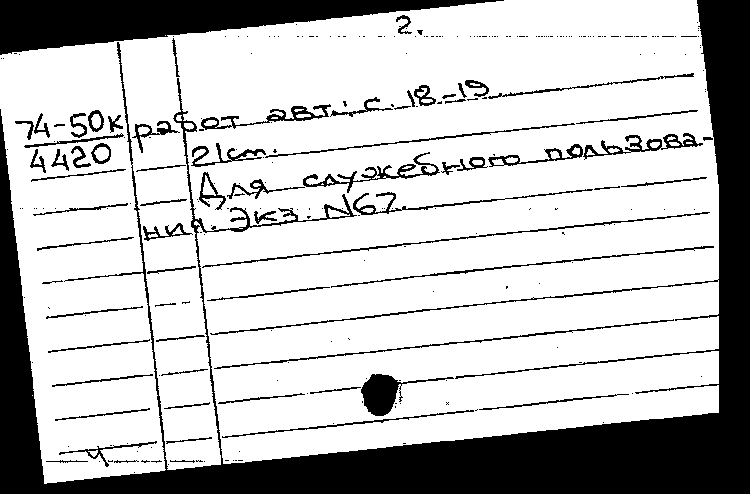 2.
74-50к работ авт.; с. 18-19.
4420 21cm.
Для служебного пользова-
ния. Экз. N67.
ч